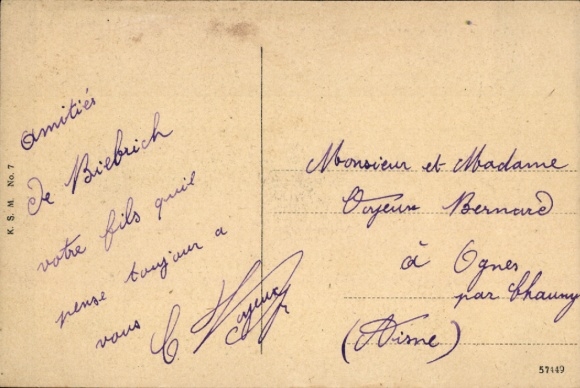 amitiés
de Biebrich
votre fils quil
pense toujour a
vous
K. S. M. No. 7
Monsieur et Madame
Bernard
à Ognes
par Chauny
(Aisne)
57449